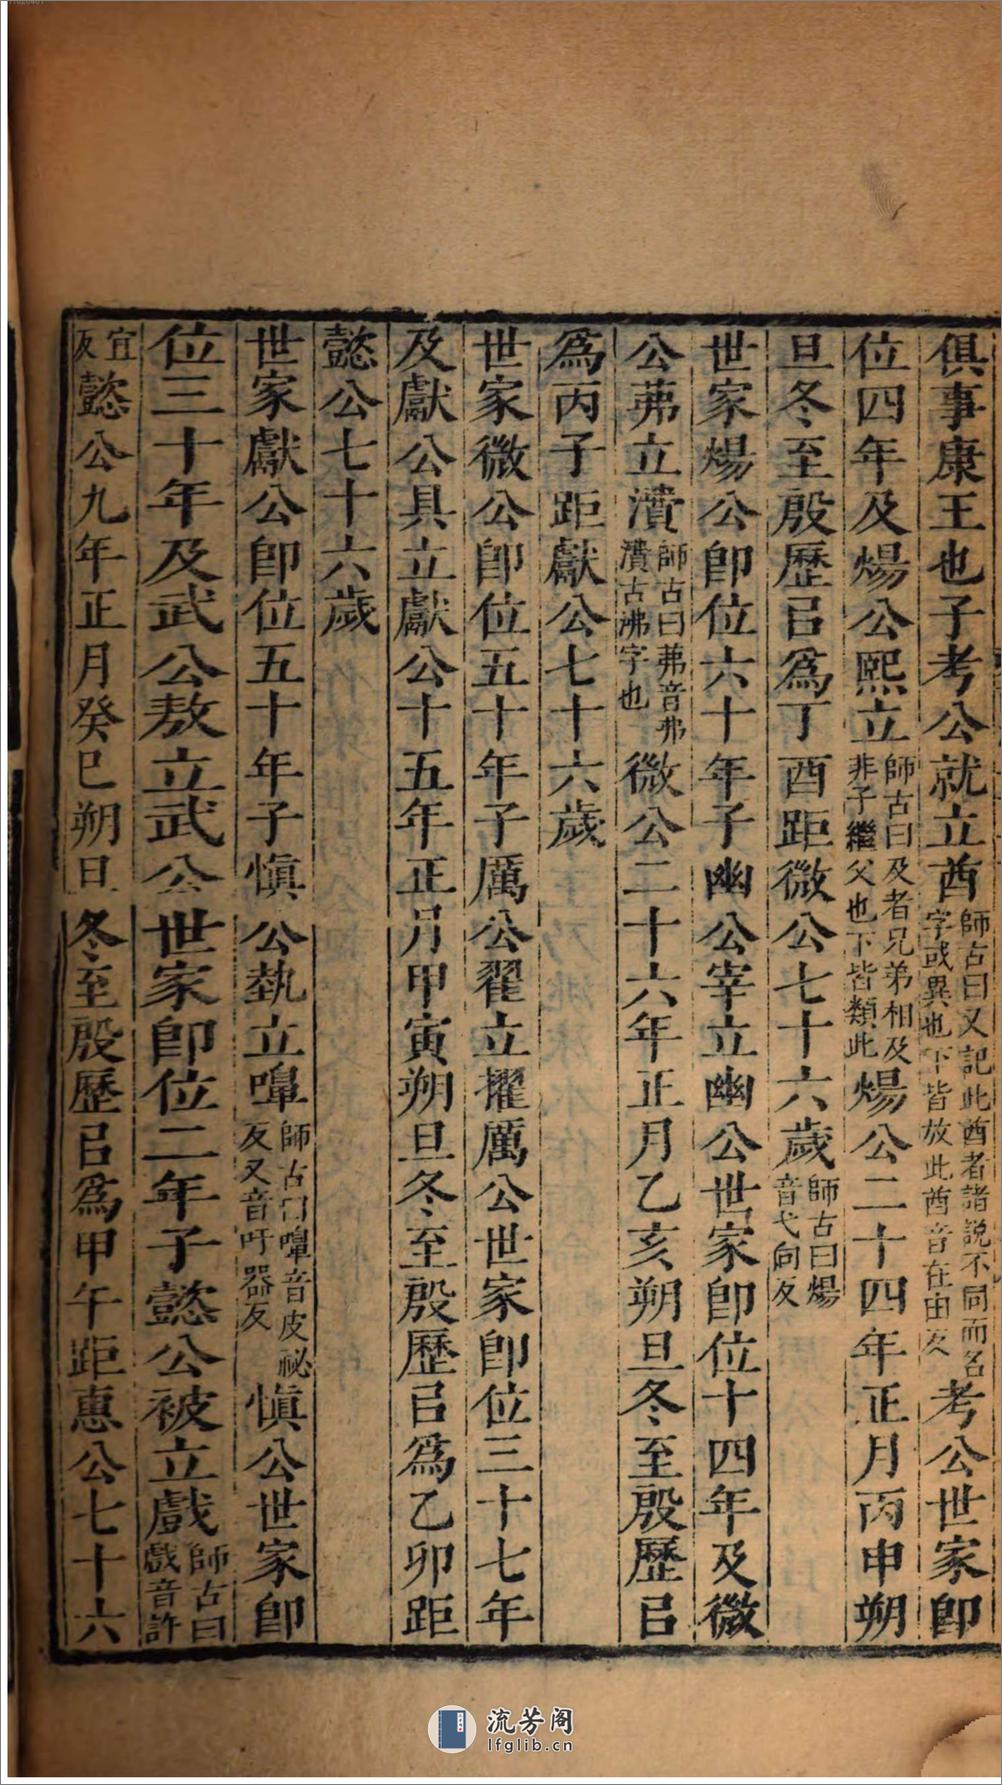 俱事康王也子考公就立酋師古曰又記此酋者諸說不同而名字或異也下皆放此酋音在由反考公世家卽
位四年及煬公熙立師古曰及者兄弟相及非子繼父也下皆類此煬公二十四年正月丙申朔
旦冬至殷歷㠯爲丁酉距微公七十六歲師古曰煬音弋向反
世家煬公卽位六十年子幽公宰立幽公世家卽位十四年及微
公茀立㵒師古曰茀音弗㵒古沸字也微公二十六年正月乙亥朔旦冬至殷歷㠯
爲丙子距獻公七十六歲
世家微公卽位五十年子厲公翟立擢厲公世家卽位三十七年
及獻公具立獻公十五年正月甲寅朔旦冬至殷歷㠯爲乙卯距
懿公七十六歲
世家獻公卽位五十年子愼公埶立嚊師古曰嚊音皮祕反又音吁器反愼公世家卽
位三十年及武公敖立武公世家卽位二年子懿公被立戲師古曰戲音許
宜反懿公九年正月癸巳朔旦冬至殷歷㠯爲甲午距惠公七十六
流芳阁
lfglib.cn